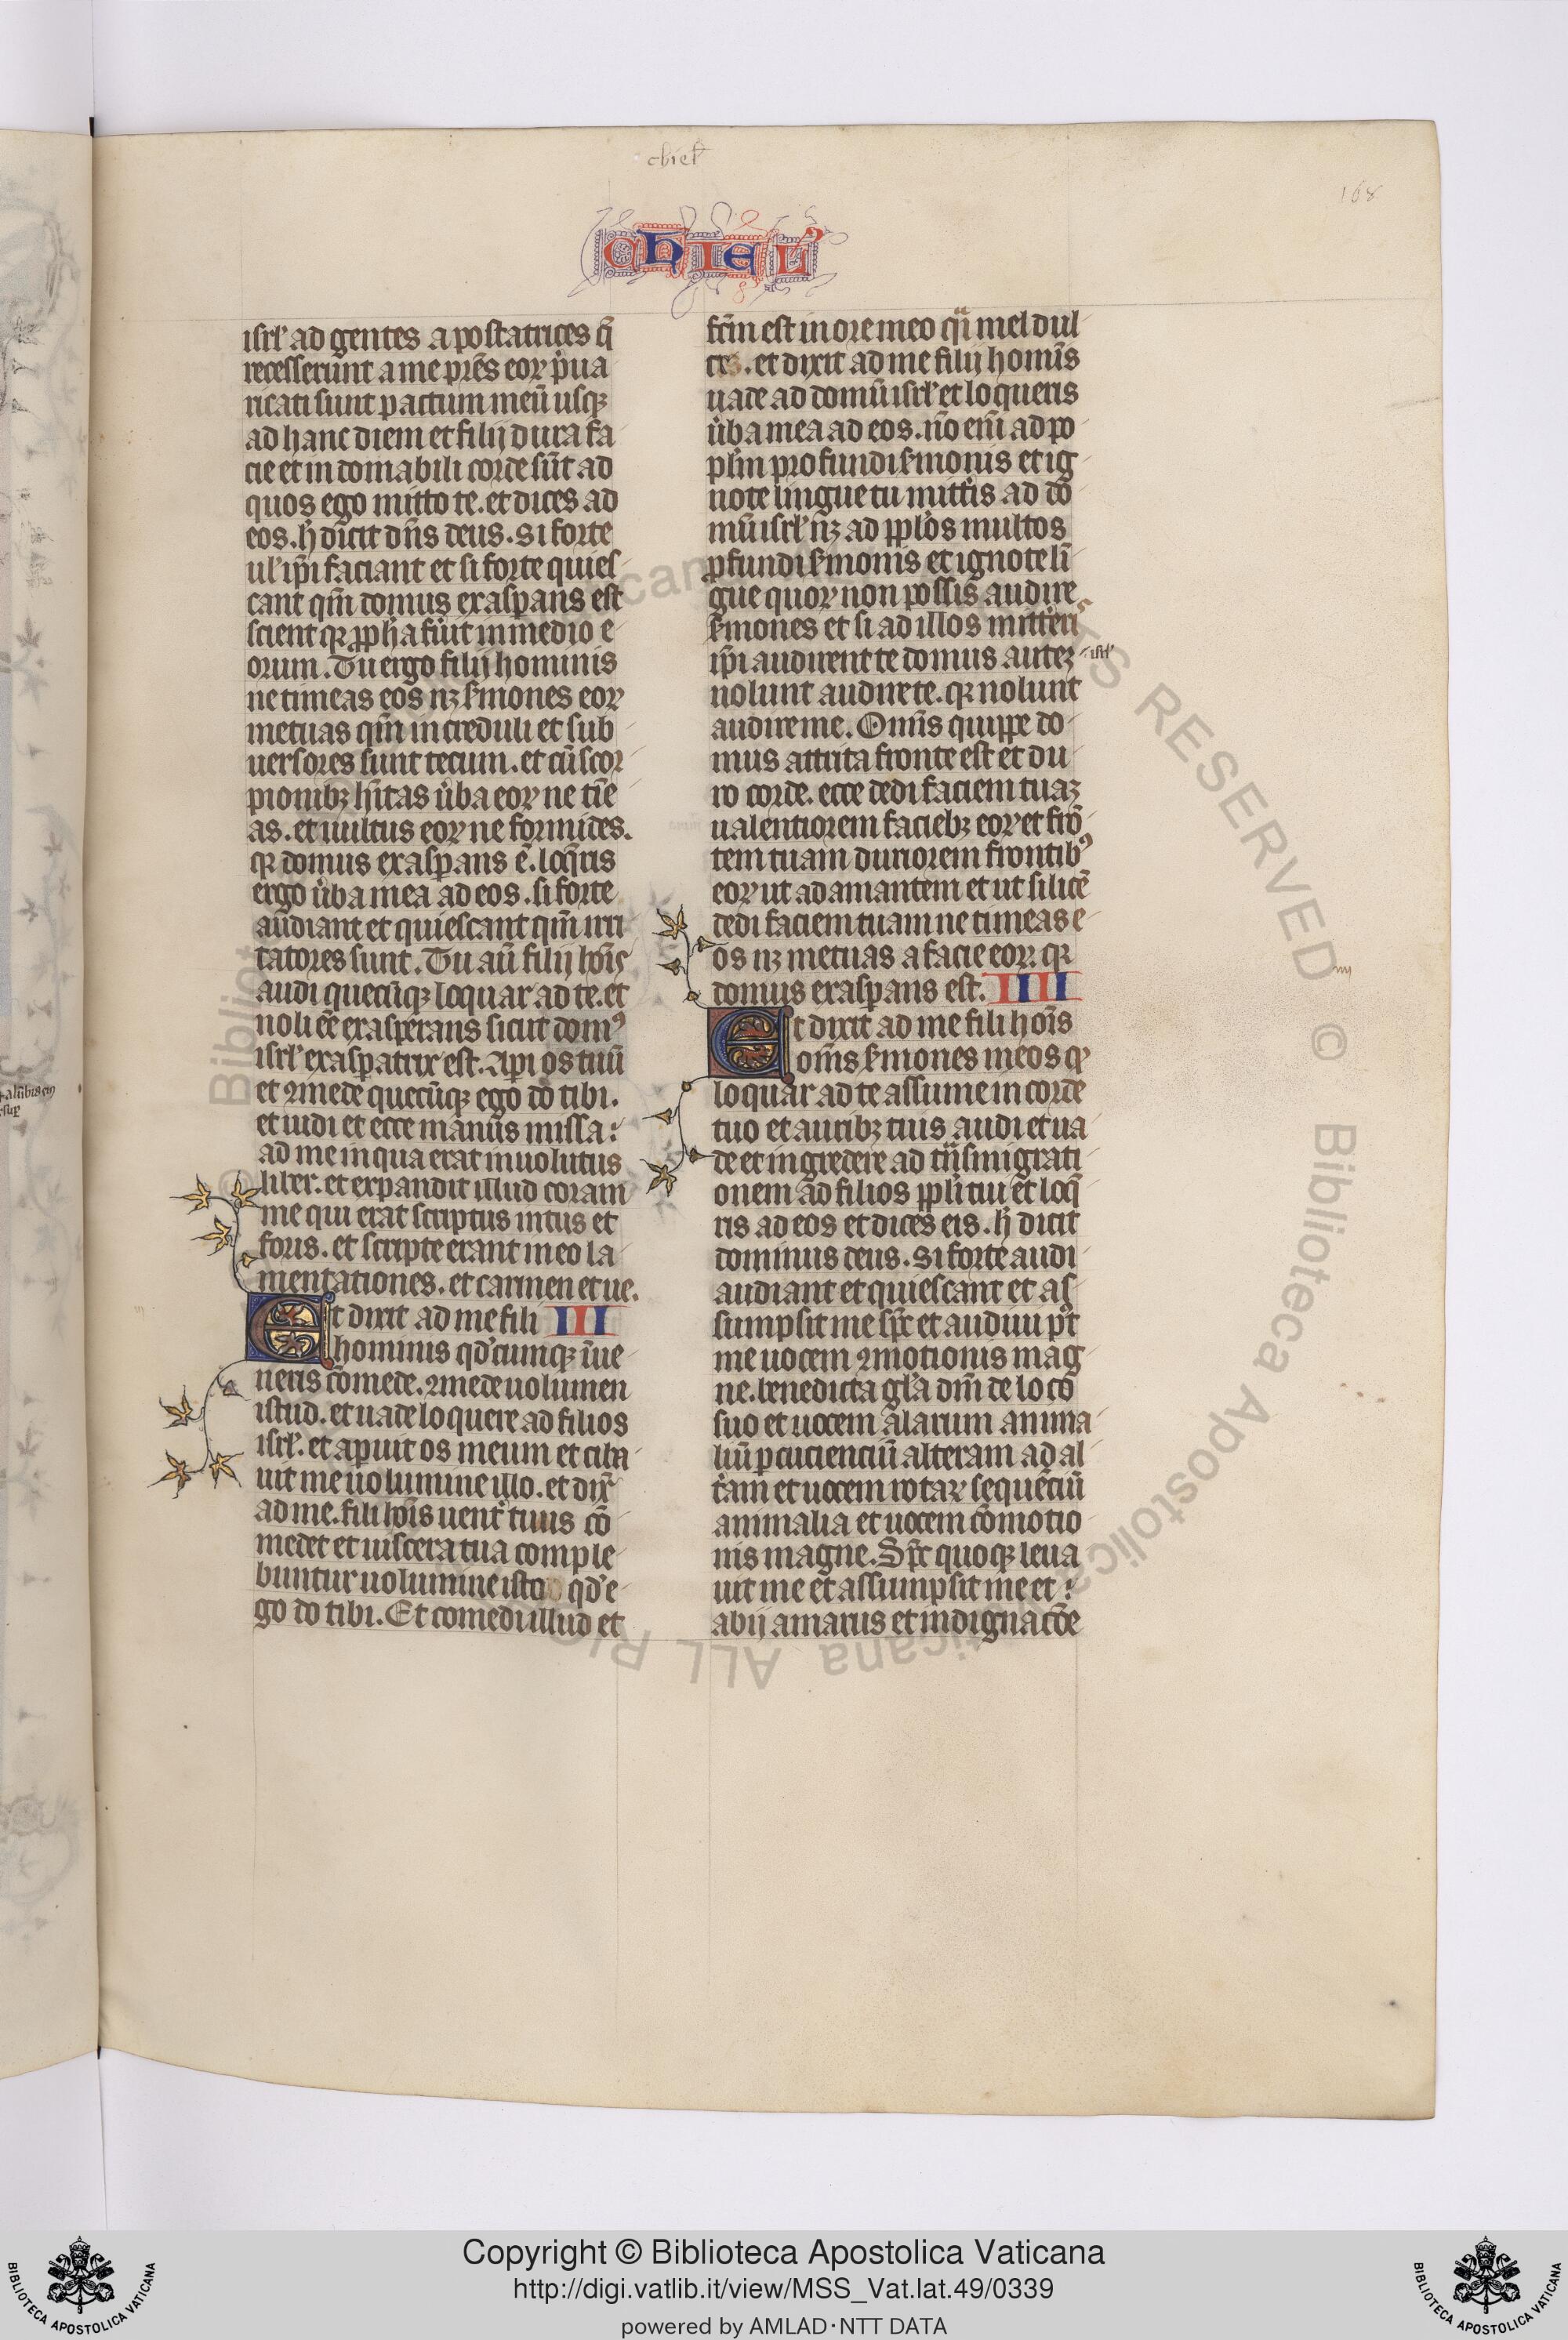 chiel̄
168
CHIEL'
isrl' ad gentes apostatrices q̄
recesserunt a me pr̄es eoꝝ p̄ua
ricati sunt pactum meū usqꝫ
ad hanc diem et filij dura fa
cie et indomabili corde sūt ad
quos ego mitto te. et dices ad
eos. h̄ dicit dn̄s deus. Si forte
ul' ip̄i faciant et si forte quies
cant qm̄ domus exasꝑans est
scient qꝛ ꝓph̄a fūit in medio e
orum. Tu ergo filij hominis
ne timeas eos nꝫ s̄mones eoꝝ
metuas qm̄ increduli et sub
uersores sunt tecum. et cū scor
pionibꝫ h̄itas ūba eoꝝ ne tīe
as. et uultus eoꝝ ne formides.
qꝛ domus exasꝑans ē. loq̄ris
ergo ūba mea ad eos. si forte
audiant et quiescant qm̄ irri
tatores sunt. Tu aū filij hōis
audi quecūqꝫ loquar ad te. et
noli eē exasperans sicut domꝰ
isrl' exasꝑatrix est. Aperi os tuū
et ꝯmede quecūqꝫ ego do tibi.
et uidi et ecce manus missa:
ad me in qua erat inuolutus
liber. et expandit illud coram
me qui erat scriptus intus et
foris. et scripte erant in eo la
mentationes. et carmen et ue.
Et dixit ad me fili III
hominis qd'cumqꝫ īue
neris comede. ꝯmede uolumen
istud. et uade loquere ad filios
isrl'. et aperuit os meum et ciba
uit me uolumine illo. et dix̄
ad me. fili hōis uent̄ tuus cō
medet et uiscera tua comple
buntur uolumine isto qd' e
go do tibi. Et comedi illud et
fc̄m est in ore meo q̄i mel dul
ce. et dixit ad me filij homīs
uade ad domū isrl' et loqueris
ūba mea ad eos. nō enī ad po
pl'm profundi s̄monis et ig
note lingue tu mitt̄is ad do
mū isrl' nꝫ ad ppl'os multos
ꝓfundi s̄monis et ignote lī
gue quoꝝ non possis audire
s̄mones et si ad illos mitt̄eris
ip̄i audirent te domus autēꝫ isrl'
nolunt audire te. qꝛ nolunt
audire me. Omīs quippe do
mus attrita fronte est et du
ro corde. ecce dedi faciem tuaꝫ
ualentiorem faciebꝫ eoꝝ et frō
tem tuam duriorem frontibꝰ
eoꝝ ut adamantem et ut silicē
dedi faciem tuam ne timeas e
os nꝫ metuas a facie eoꝝ. qꝛ
domus exasꝑans est. IIII
Et dixit ad me fili hoīs
om̄s s̄mones meos qͦs
loquar ad te assume in corde
tuo et auribꝫ tuis audi et ua
de et ingredere ad tn̄smigrati
onem ad filios ppl'i tui et loq̄
ris ad eos et dices eis. h̄ dicit
dominus deus. Si forte audi
audiant et quiescant et as
sumpsit me sp̄c et audiui pꝰt
me uocem ꝯmotionis mag
ne. benedicta gl'a dn̄i de loco
suo et uocem alarum anima
liū ꝑcucienciū alteram ad al
t̄am et uocem rotaꝝ sequēciū
animalia et uocem cōmotio
nis magne. Sp̄c quoqꝫ leua
uit me et assumpsit me et:
abij amarus et indignac̄oe
Copyright © Biblioteca Apostolica Vaticana
http://digi.vatlib.it/view/MSS_Vat.lat.49/0339
powered by AMLAD·NTT DATA